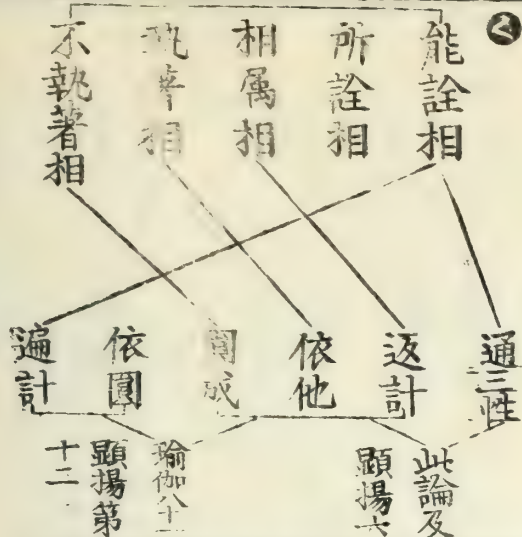 能詮相
所詮相
相属相
執著相
不執著相
通三性
遍計
依他
圓成
依圓
遍計
此論及
顯揚六
瑜伽八十一
顯揚第
十二